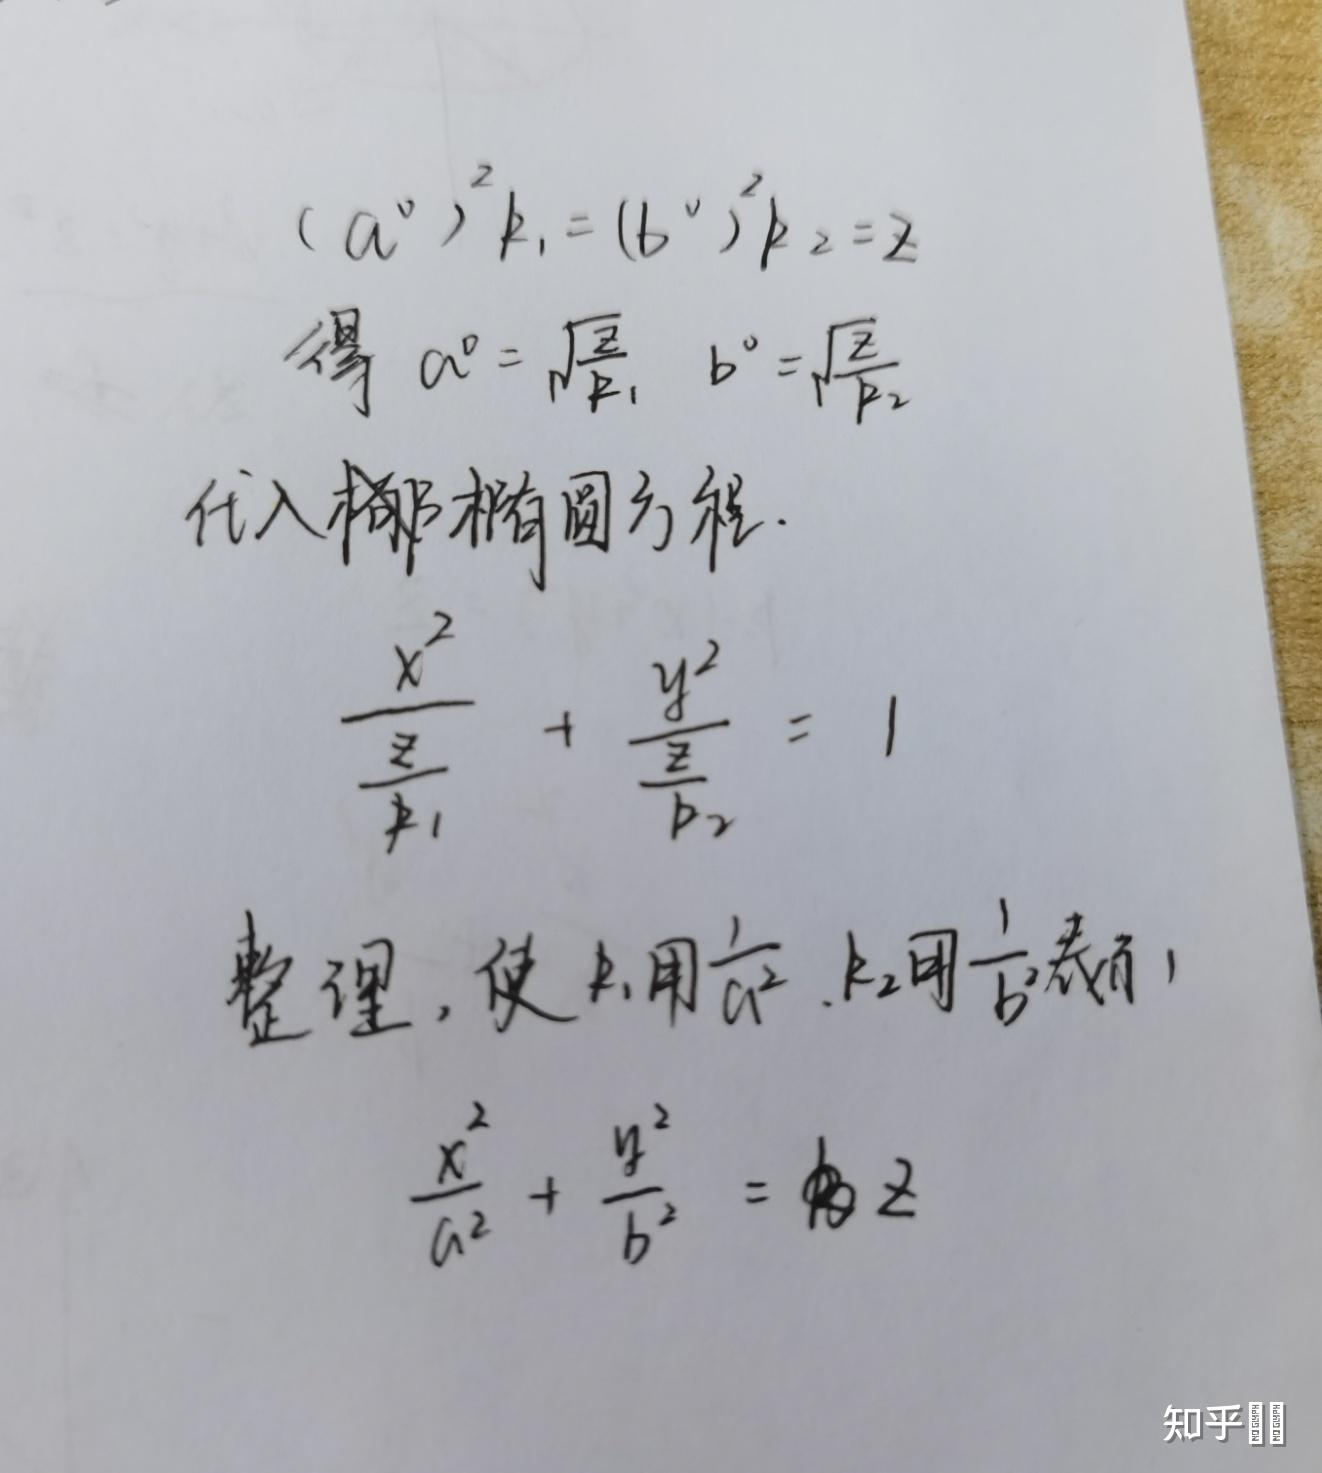 (a⁰)²k₁=(b⁰)²k₂=z
得 a⁰=√(z/k₁) b⁰=√(z/k₂)
代入椭圆方程.
x²/(z/k₁) + y²/(z/k₂) = 1
整理,使k₁用1/a².k₂用1/b²表示,
x²/a² + y²/b² = z
知乎